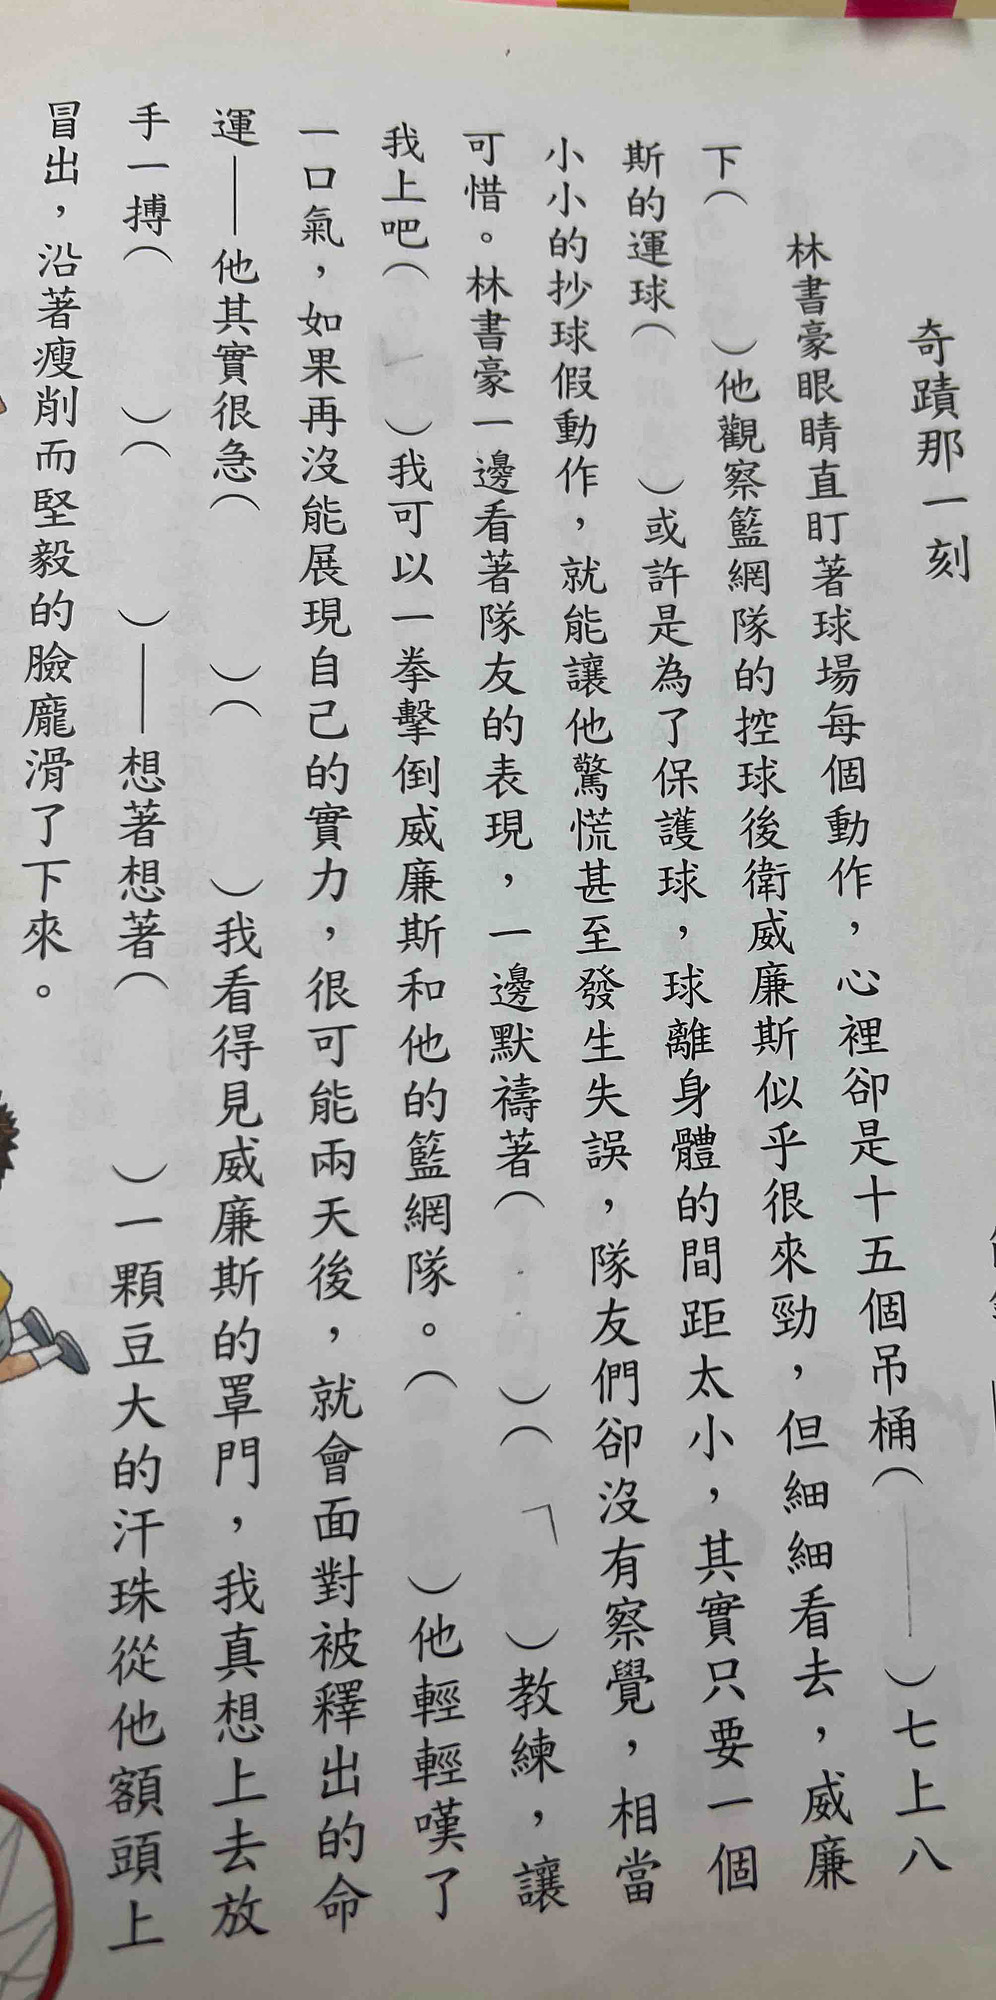 奇蹟那一刻
林書豪眼睛直盯著球場每個動作，心裡卻是十五個吊桶（　　）七上八
下（　　）他觀察籃網隊的控球後衛威廉斯似乎很來勁，但細細看去，威廉
斯的運球（　　）或許是為了保護球，球離身體的間距太小，其實只要一個
小小的抄球假動作，就能讓他驚慌甚至發生失誤，隊友們卻沒有察覺，相當
可惜。林書豪一邊看著隊友的表現，一邊默禱著（　　）（　﹁　）教練，讓
我上吧（　　）我可以一拳擊倒威廉斯和他的籃網隊。（　　）他輕輕嘆了
一口氣，如果再沒能展現自己的實力，很可能兩天後，就會面對被釋出的命
運——他其實很急（　　）（　　）我看得見威廉斯的罩門，我真想上去放
手一搏（　　）（　　）——想著想著（　　）一顆豆大的汗珠從他額頭上
冒出，沿著瘦削而堅毅的臉龐滑了下來。